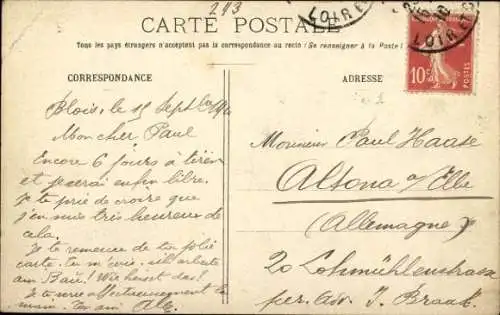 243
CARTE POSTALE
Tous les pays étrangers n'acceptent pas la correspondance au recto (Se renseigner à la Poste)
CORRESPONDANCE
ADRESSE
LOIRE
LOIRE
10c
POSTES
Blois, le 15 Sept
Mon cher Paul
Encore 6 jours à tirer
et je serai enfin libre.
Je te prie de croire que
j'en suis très heureux de
cela.
Je te remercie de ta jolie
carte. Tu m'écris:
am Bau! Wie heisst das!
Je te serre affectueusement la
main. Ton ami
Monsieur Paul Haase
Altona a/Elbe
(Allemagne)
20 Lohmühlenstrasse
per. Adr. J. Braak